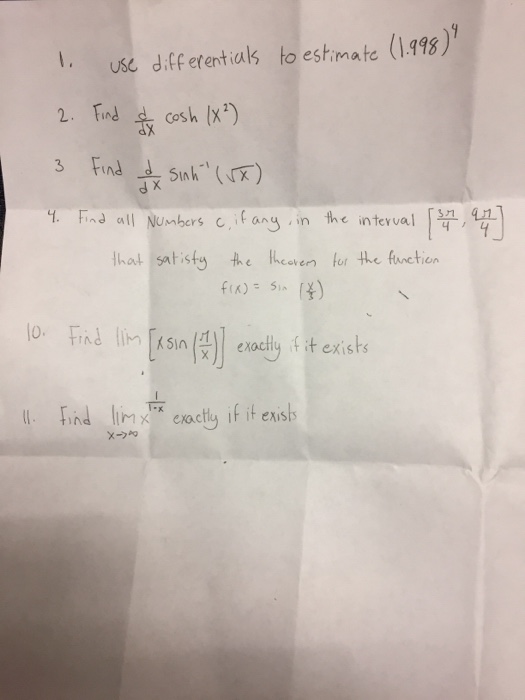 1. use differentials to estimate (1.998)⁴
2. Find d/dx cosh (x²)
3 Find d/dx Sinh⁻¹ (√x)
4. Find all Numbers c, if any, in the interval [3π/4, 9π/4]
that satisty the theorem for the function
f(x) = Sin (x/3)
10. Find lim [x sin (π/x)] exactly if it exists
11. Find lim x→∞ x^(1/(1-x)) exactly if it exists